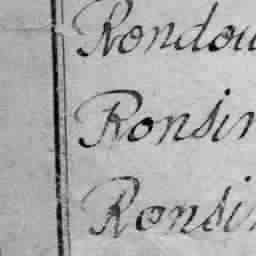 Rondou
Ronsin
Ronsin